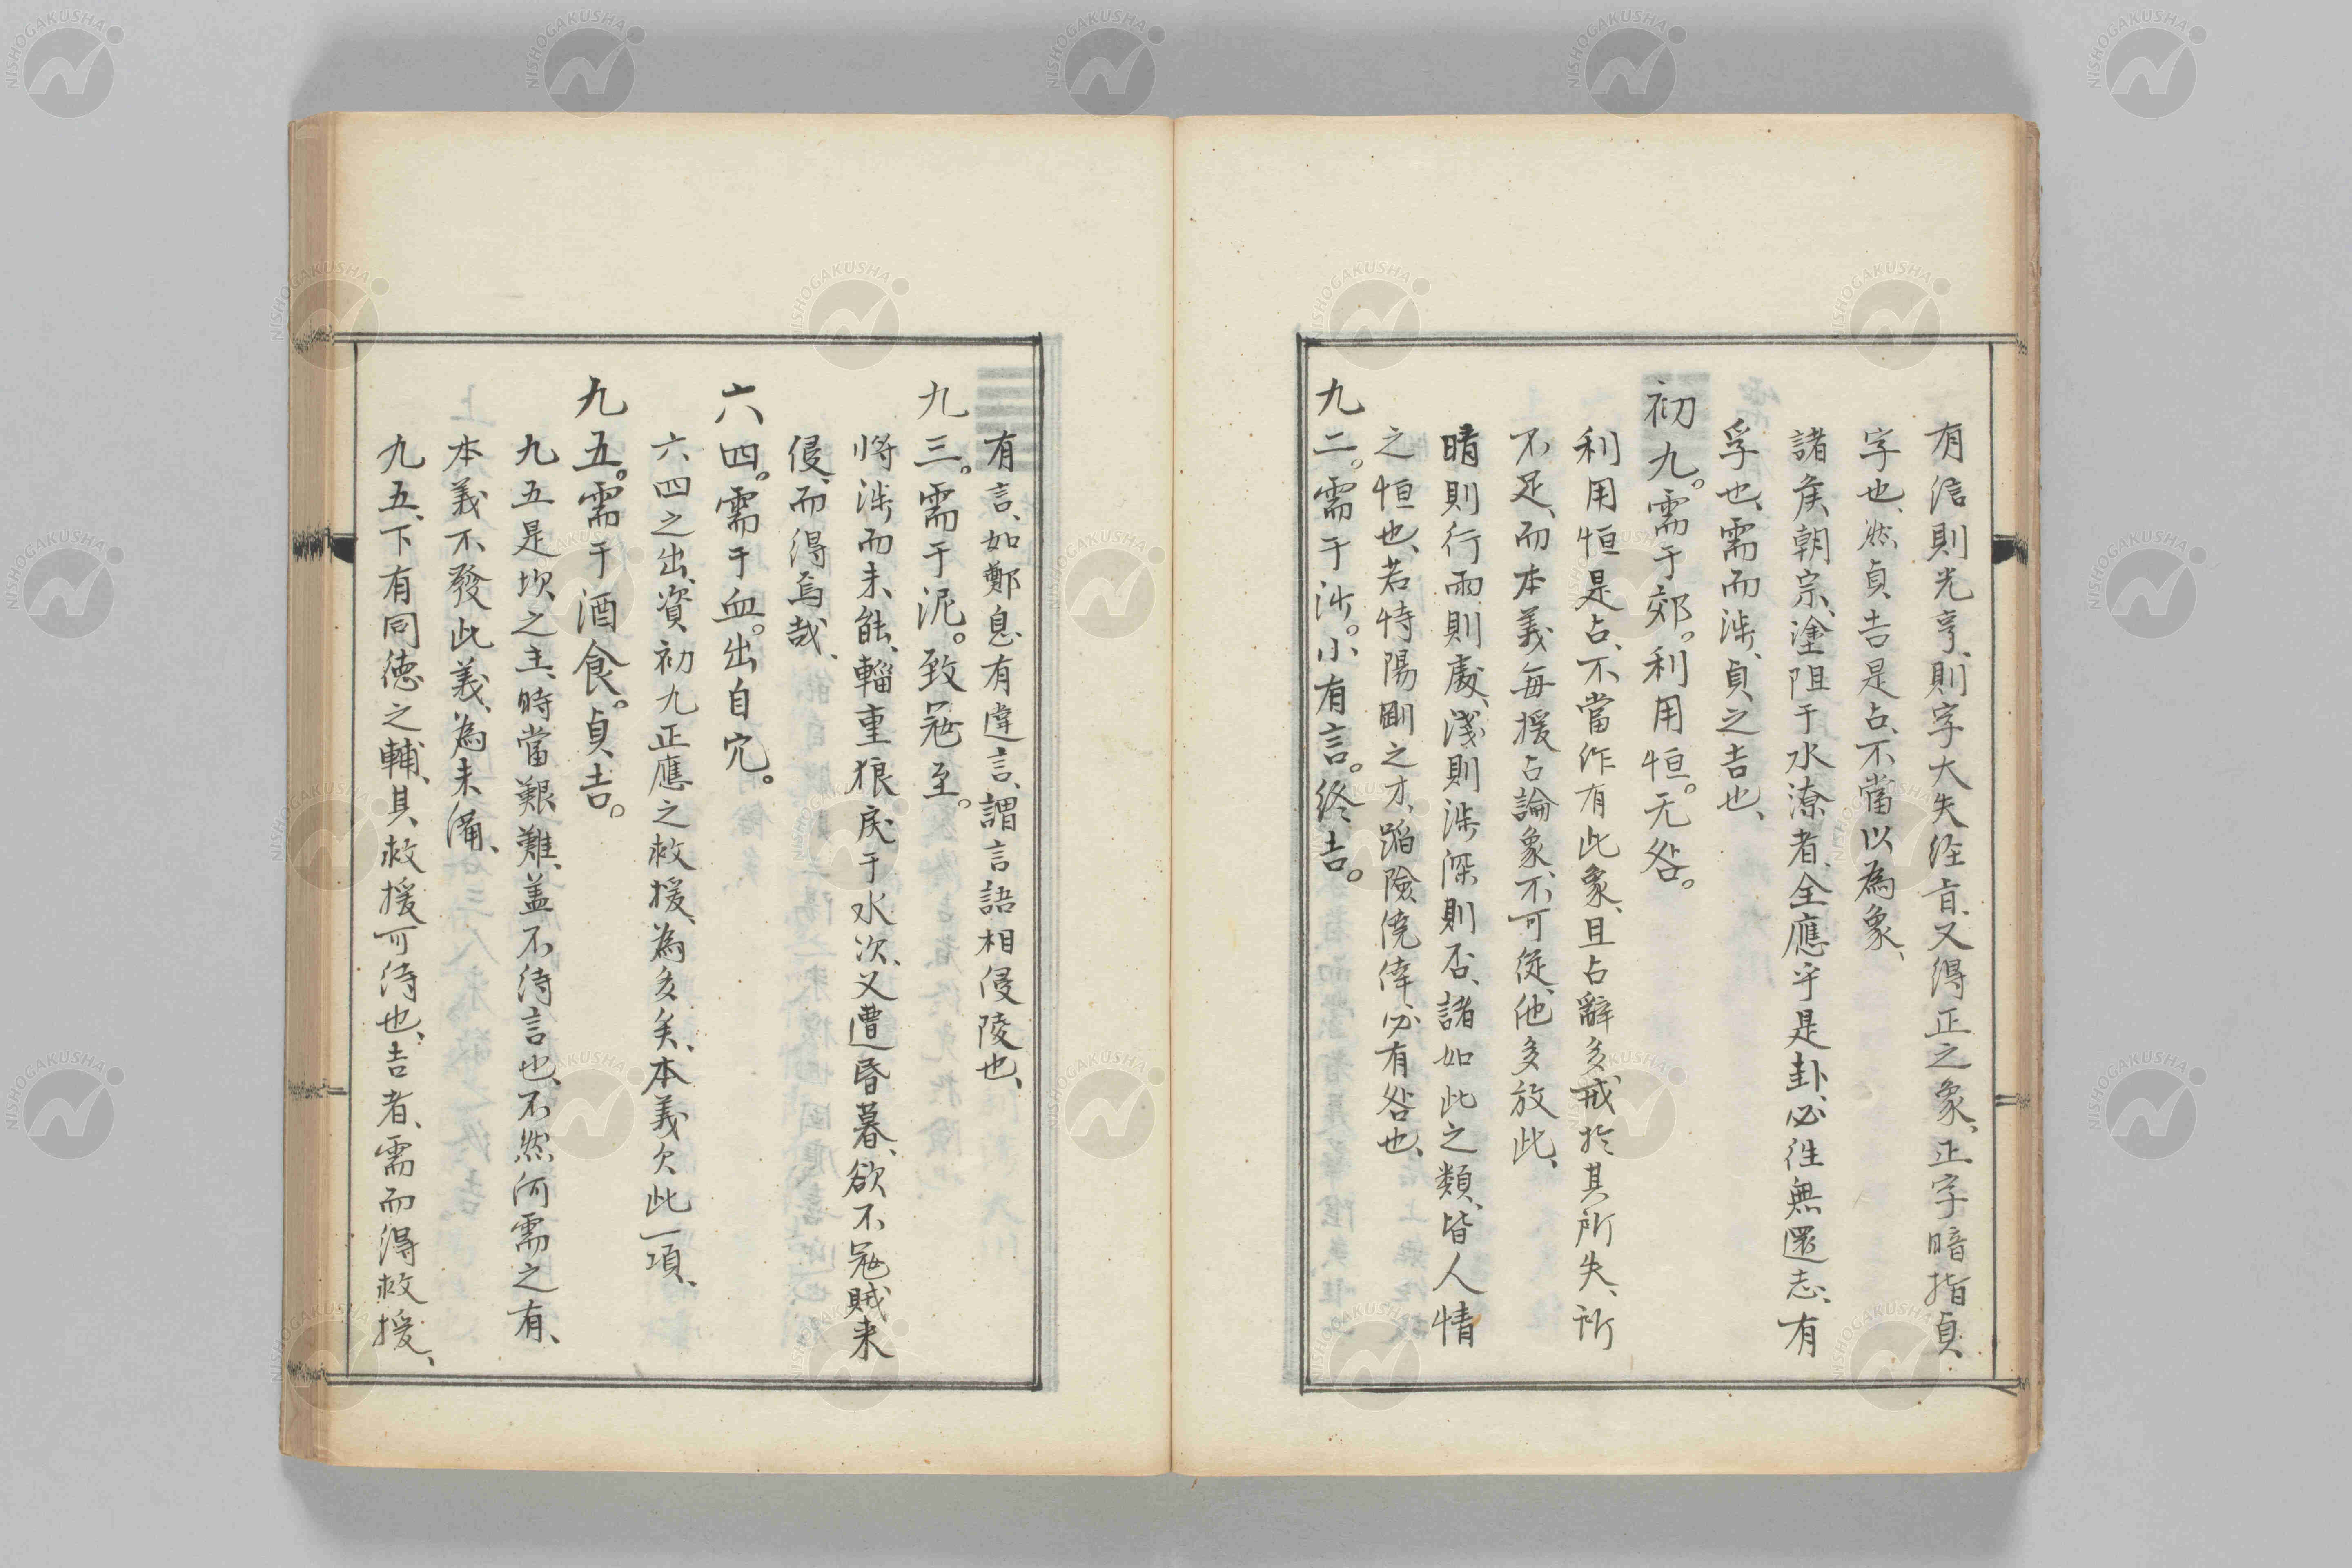 有信則光亨、則字大失経旨、又得正之象、正字暗指貞
字也、然貞吉是占、不當以為象、
諸侯朝宗、塗阻于水潦者、全應乎是卦、必徃無還志、有
孚也、需而渉、貞之吉也、
初九。需于郊。利用恒。无咎。
利用恒是占、不當作有此象、且占辭多戒於其所失、所
不足、而本義毎援占論象、不可從、他多放此、
晴則行雨則處、淺則渉深則否、諸如此之類、皆人情
之恒也、若恃陽剛之才、蹈險僥倖、必有咎也、
九二。需于沙。小有言。終吉。
有言、如鄭息有違言、謂言語相侵陵也、
九三。需于泥。致寇至。
將渉而未能、輜重狼戾于水次、又遭昏暮、欲不寇賊来
侵、而得焉哉、
六四。需于血。出自穴。
六四之出、資初九正應之救援、為多矣、本義欠此一項、
九五。需于酒食。貞吉。
九五是坎之主、時當艱難、盖不待言也、不然何需之有、
本義不發此義、為未備、
九五、下有同德之輔、其救援可待也、吉者、需而得救援、
NISHOGAKUSHA